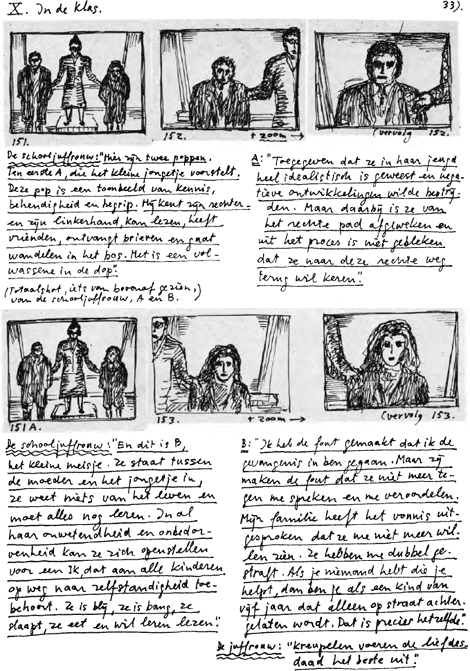 X. In de klas.
33).
151.
152.
+ zoom →
(vervolg 152.
De schooljuffrouw: "Hier zijn twee poppen.
Ten eerste A, die het kleine jongetje voorstelt.
Deze pop is een toonbeeld van kennis,
behendigheid en begrip. Hij kent zijn rechter-
en zijn linkerhand, kan lezen, heeft
vrienden, ontvangt brieven en gaat
wandelen in het bos. Het is een vol-
wassene in de dop."
(Totaalshot, iets van bovenaf gezien,)
van de schooljuffrouw, A en B.
A: "Toegegeven dat ze in haar jeugd
heel idealistisch is geweest en nega-
tieve ontwikkelingen wilde bestrij-
den. Maar daarbij is ze van
het rechte pad afgeweken en
uit het proces is niet gebleken
dat ze naar deze rechte weg
terug wil keren."
151A.
153.
+ zoom →
(vervolg 153.
De schooljuffrouw: "En dit is B,
het kleine meisje. Ze staat tussen
de moeder en het jongetje in,
ze weet niets van het leven en
moet alles nog leren. In al
haar onwetendheid en onbedor-
venheid kan ze zich openstellen
voor een IK, dat aan alle kinderen
op weg naar zelfstandigheid toe-
behoort. Ze is blij, ze is bang, ze
slaapt, ze eet en wil leren lezen."
B: "Ik heb de fout gemaakt dat ik de
gevangenis in ben gegaan. Maar zij
maken de fout dat ze niet meer te-
gen me spreken en me veroordelen.
Mijn familie heeft het vonnis uit-
gesproken dat ze me niet meer wil-
len zien. Ze hebben me dubbel ge-
straft. Als je niemand hebt die je
helpt, dan ben je als een kind van
vijf jaar dat alleen op straat achter-
gelaten wordt. Dat is precies hetzelfde."
De juffrouw: "Kreupelen voeren de liefdes-
daad het beste uit."